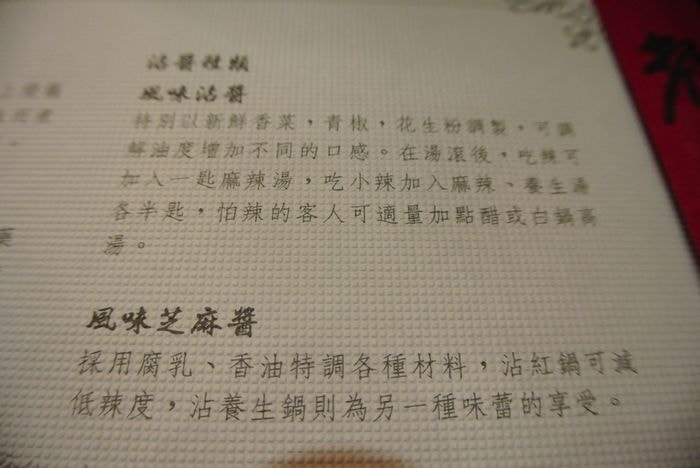 沾醬種類
風味沾醬
特別以新鮮香菜，青椒，花生粉調製，可調
解油度增加不同的口感。在湯滾後，吃辣可
加入一匙麻辣湯，吃小辣加入麻辣、養生湯
各半匙，怕辣的客人可適量加點醋或白鍋高
湯。
風味芝麻醬
採用腐乳、香油特調各種材料，沾紅鍋可減
低辣度，沾養生鍋則為另一種味蕾的享受。